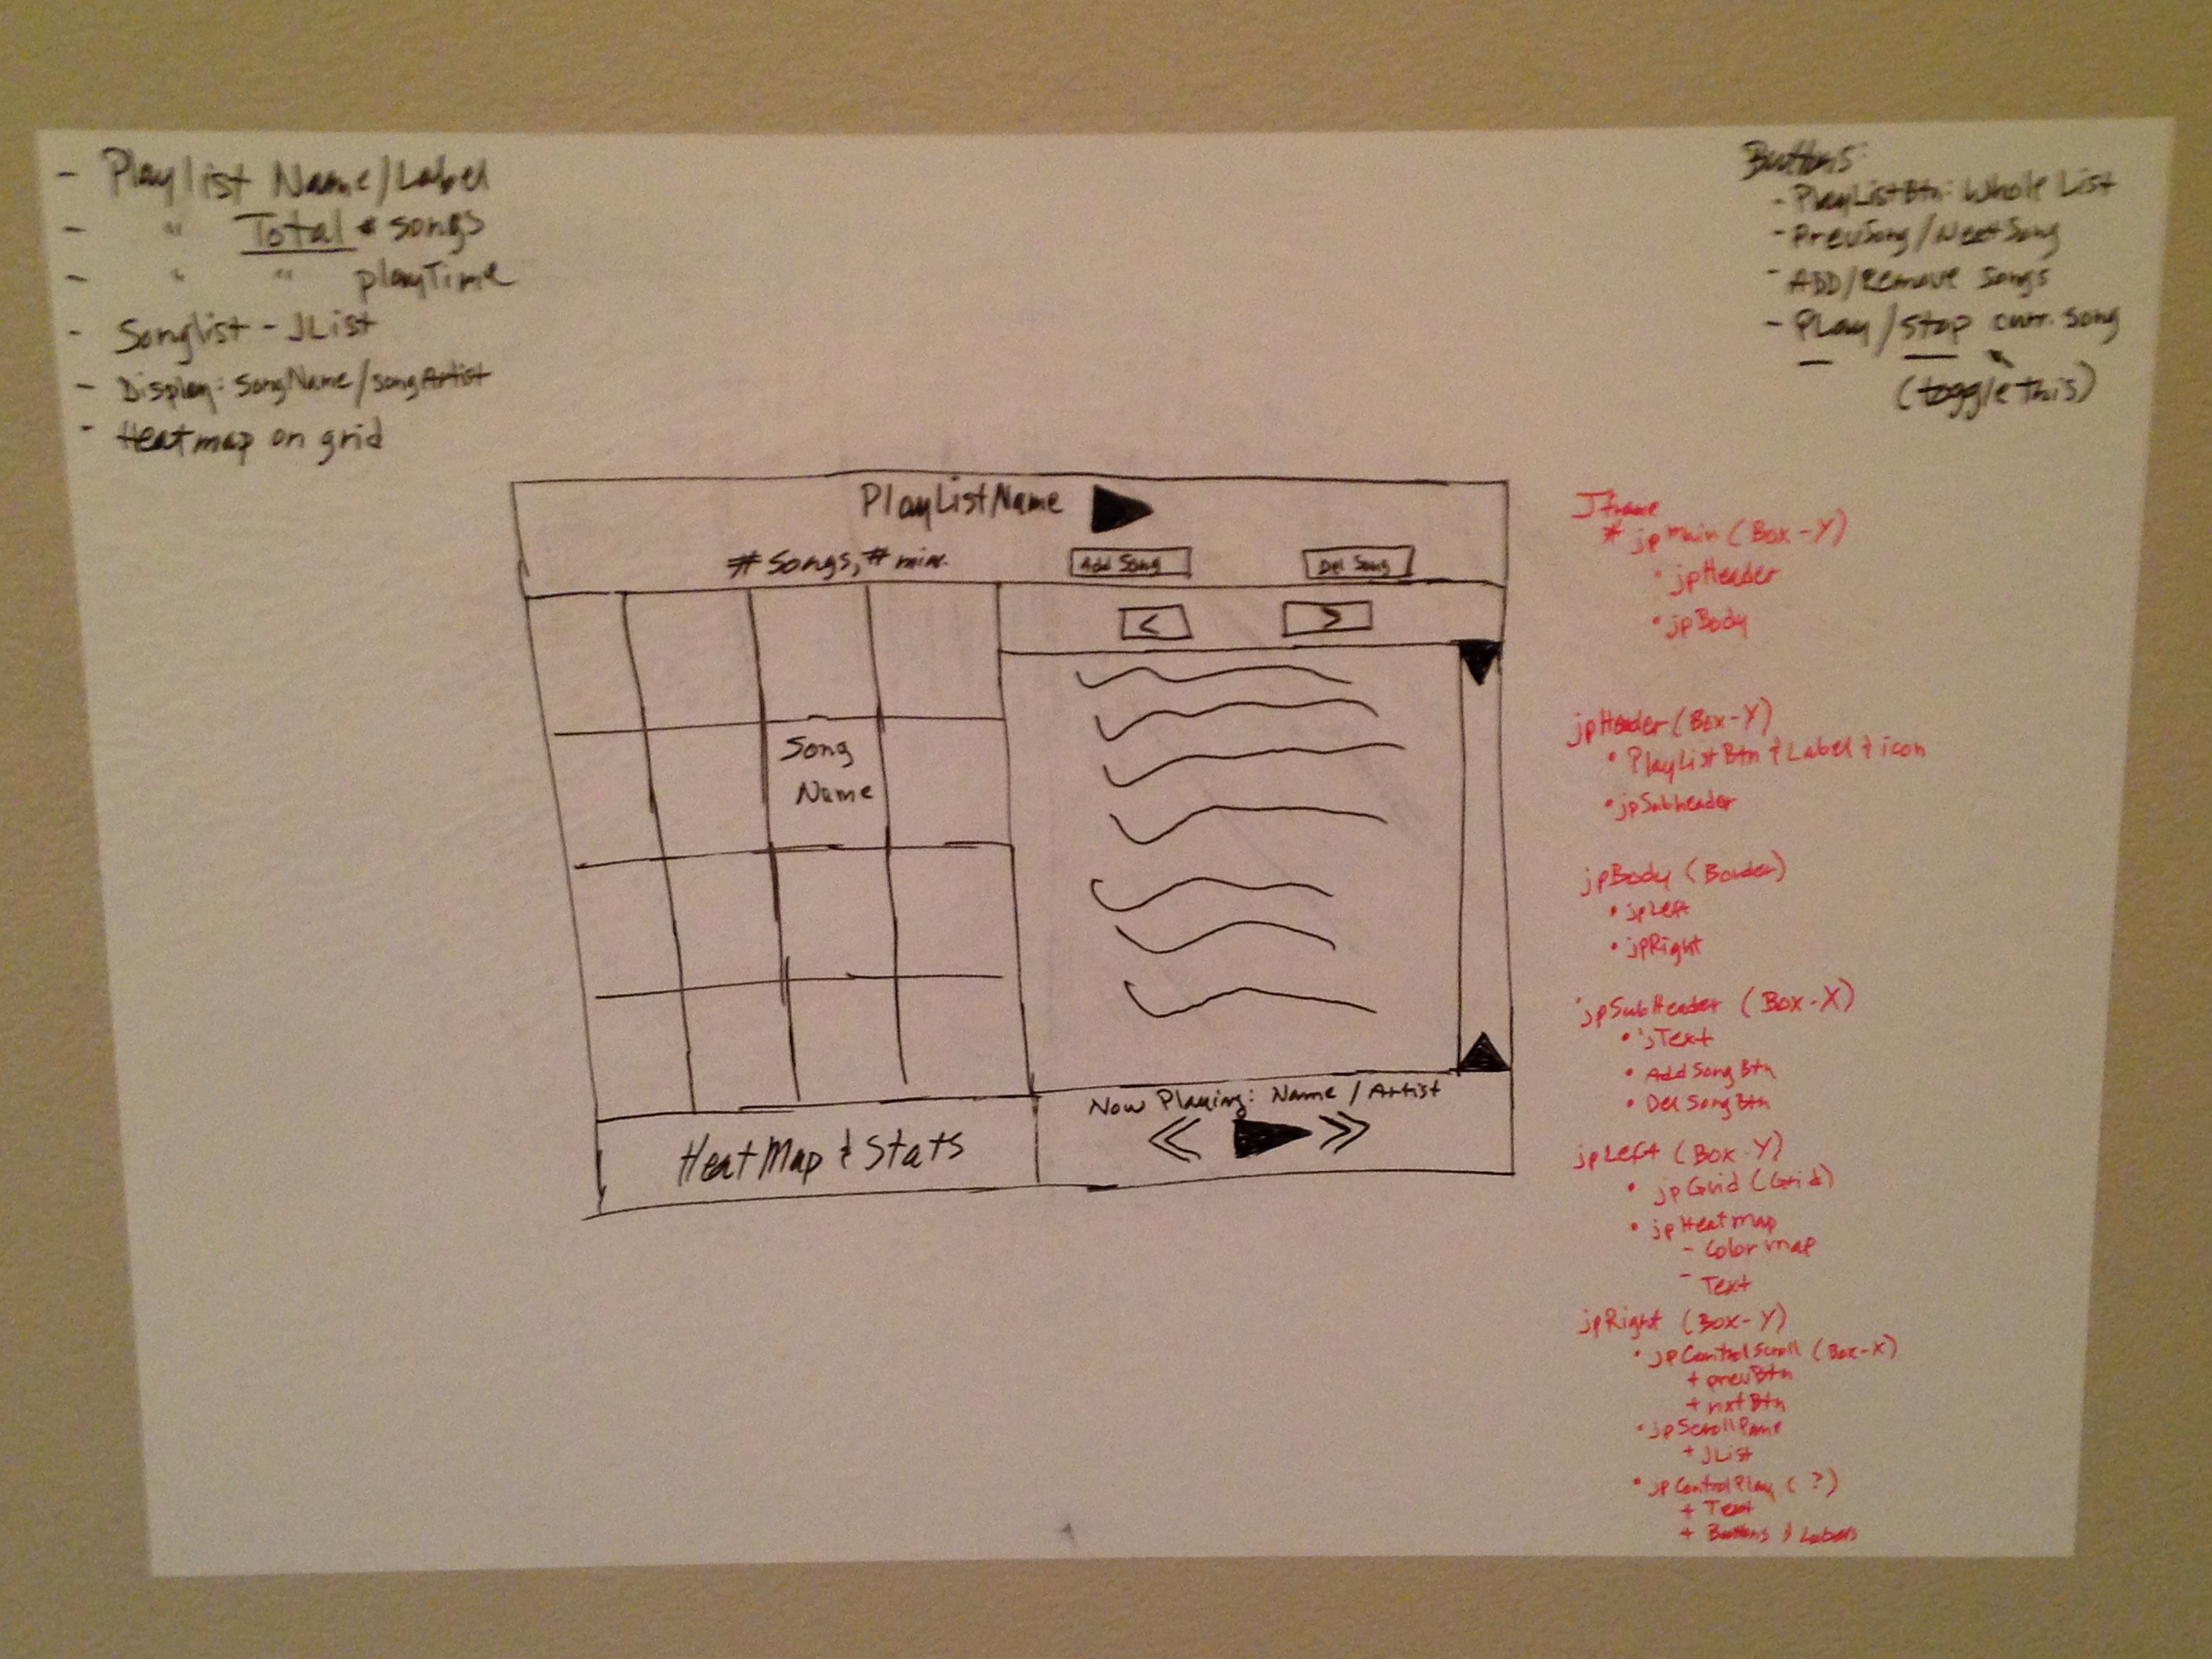 - Playlist Name/Label
- " Total # songs
- " " playTime
- Songlist - JList
- Display: SongName/songArtist
- Heatmap on grid
Buttons:
- PlayListBtn: Whole List
- PrevSong/NextSong
- ADD/Remove Songs
- Play/Stop curr. song
(toggle This)
PlayListName
#Songs, #min.
Add Song
Del Song
<
>
Song
Name
Now Playing: Name / Artist
HeatMap & Stats
JFrame
* jpMain (Box-Y)
• jpHeader
• jpBody
jpHeader (Box-Y)
• PlayListBtn & Label & icon
• jpSubheader
jpBody (Border)
• jpLeft
• jpRight
jpSubHeader (Box-X)
• jText
• AddSongBtn
• DelSongBtn
jpLeft (Box-Y)
• jpGrid (Grid)
• jpHeatmap
- Color map
- Text
jpRight (Box-Y)
• jpControlScroll (Box-X)
+ prevBtn
+ nxtBtn
• jpScrollPane
+ JList
• jpControlPlay (?)
+ Text
+ Buttons & Labels